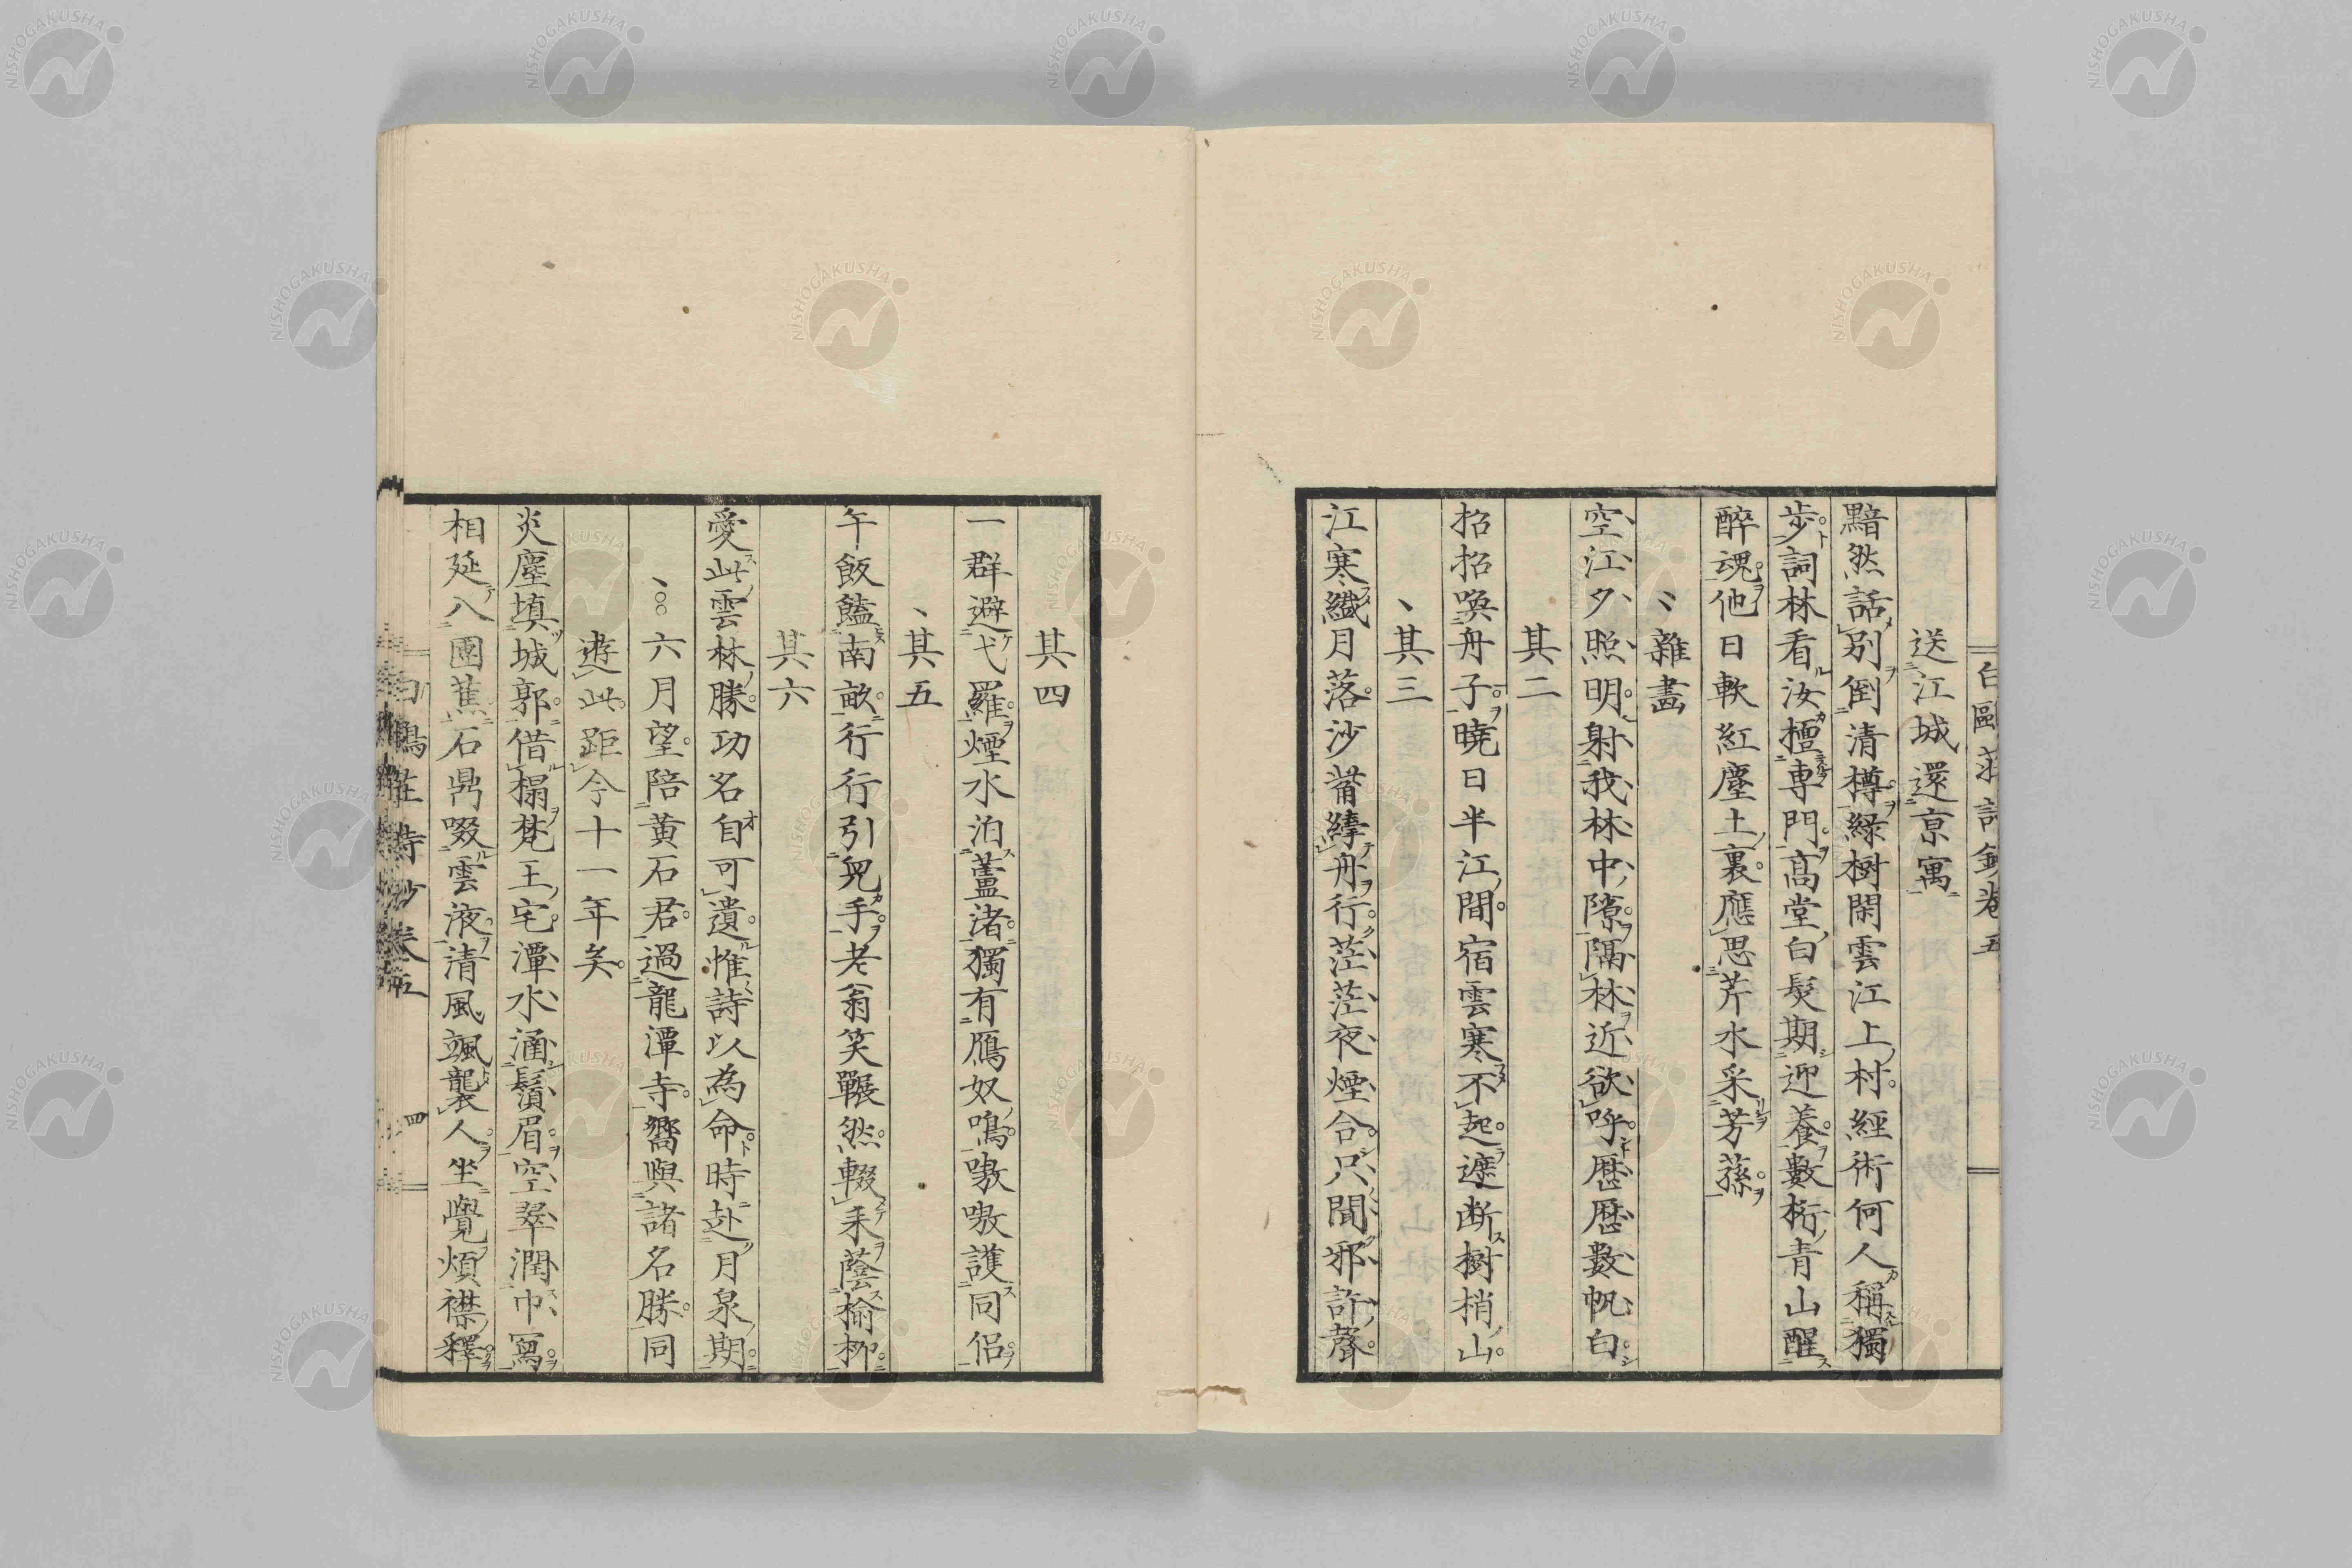 白鷗莊詩鈔卷五
送江城還京寓
黯然話別倒清樽綠樹閑雲江上村經術何人稱獨
步詞林看汝擅専門高堂白髮期迎養數桁青山醒
醉魂他日軟紅塵土裏應思芹水采芳蓀
雜畫
空江夕照明射我林中隙隔林近欲呼歷歷數帆白
其二
招招喚舟子曉日半江間宿雲寒不起遮断樹梢山
其三
江寒纖月落沙觜縴舟行茫茫夜煙合只聞邪許聲
其四
一群避弋羅煙水泊蘆渚獨有鴈奴鳴嗷嗷護同侶
其五
午飯饁南畝行行引兒手老翁笑囅然輟耒蔭榆柳
其六
愛此雲林勝功名自可遺惟詩以為命時赴月泉期
六月望陪黃石君過龍潭寺嚮與諸名勝同
遊此距今十一年矣
炎塵填城郭借榻梵王宅潭水涵鬚眉空翠潤巾舃
相延八團蕉石鼎啜雲液清風颯襲人坐覺煩襟釋
白鷗莊詩鈔卷五
四
NISHOGAKUSHA